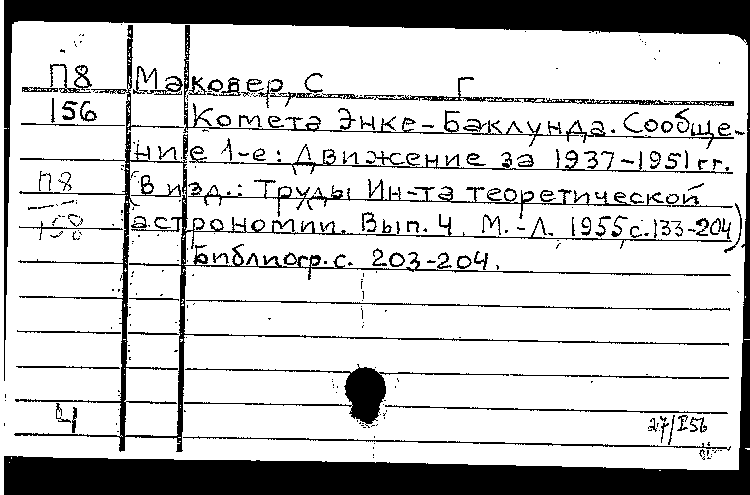 П8 Маковер, С Г
156 Комета Энке-Баклунда. Сообще-
ние 1-е: Движение за 1937-1951 гг.
П8 (В изд.: Труды Ин-та теоретической
158 астрономии. Вып. 4. М.-Л. 1955, с. 133-204)
Библиогр. с. 203-204.
4
27/I56